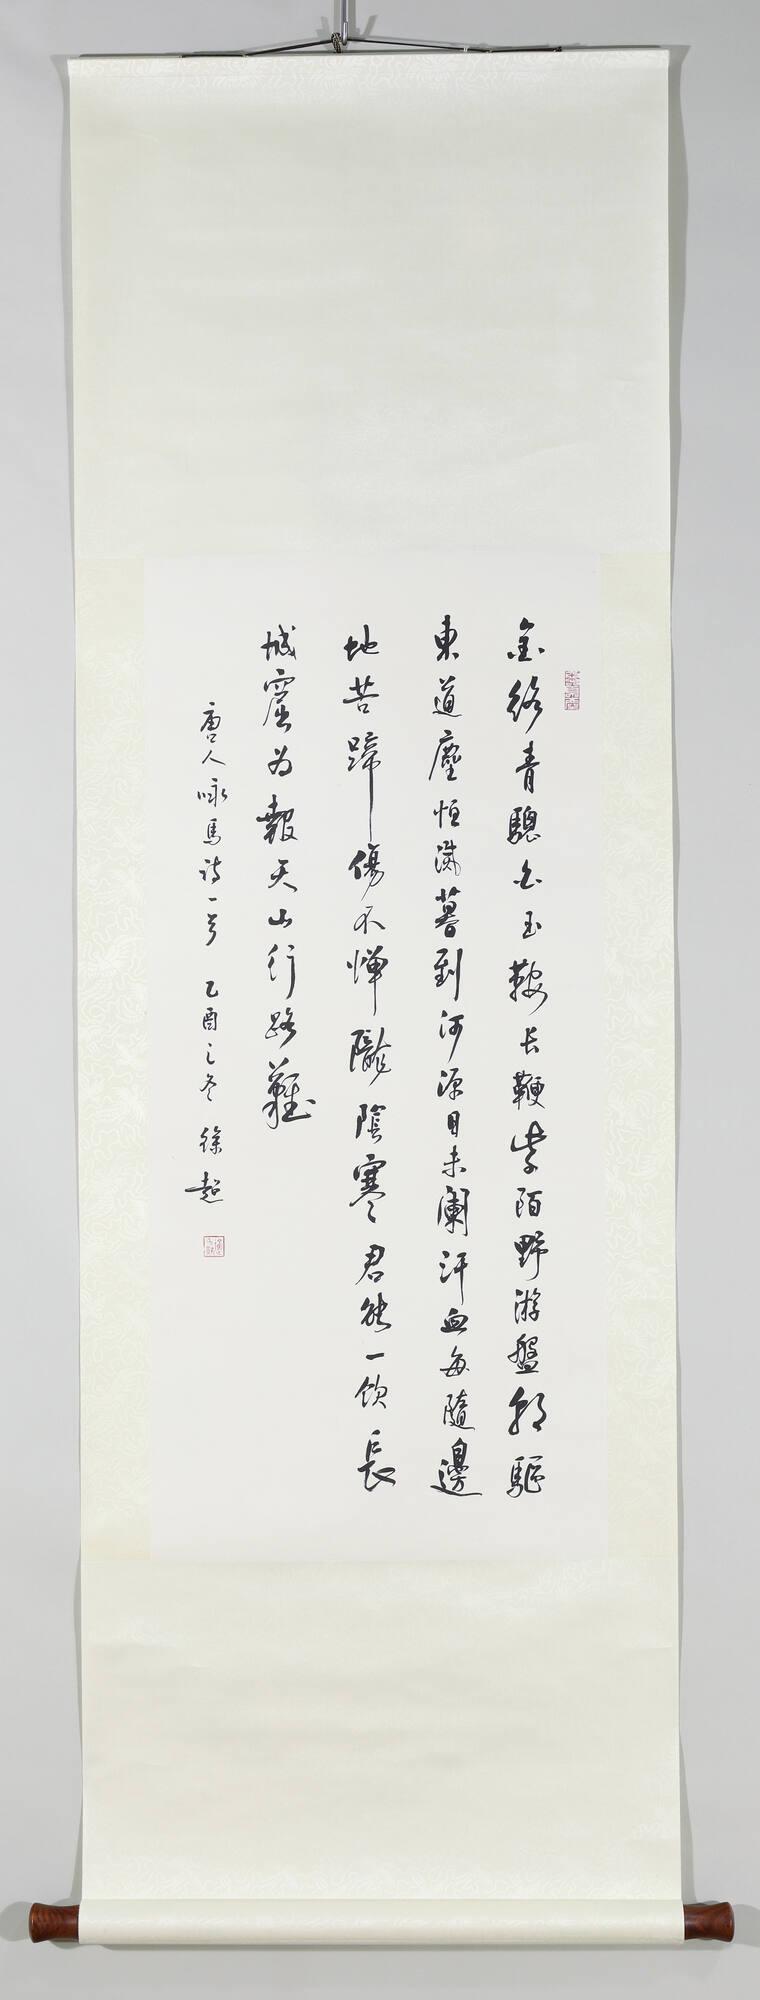 金絡青驄白玉鞍长鞭紫陌野游盤朝驅
東道塵恒滅暮到河源日未闌汗血每隨邊
地苦蹄傷不憚隴陰寒君能一飲長
城窟为報天山行路難
唐人咏馬诗一首 乙酉之冬 徐超